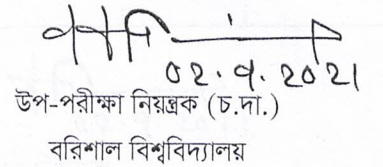 ০২.৭.২০২১
উপ-পরীক্ষা নিয়ন্ত্রক (চ.দা.)
বরিশাল বিশ্ববিদ্যালয়